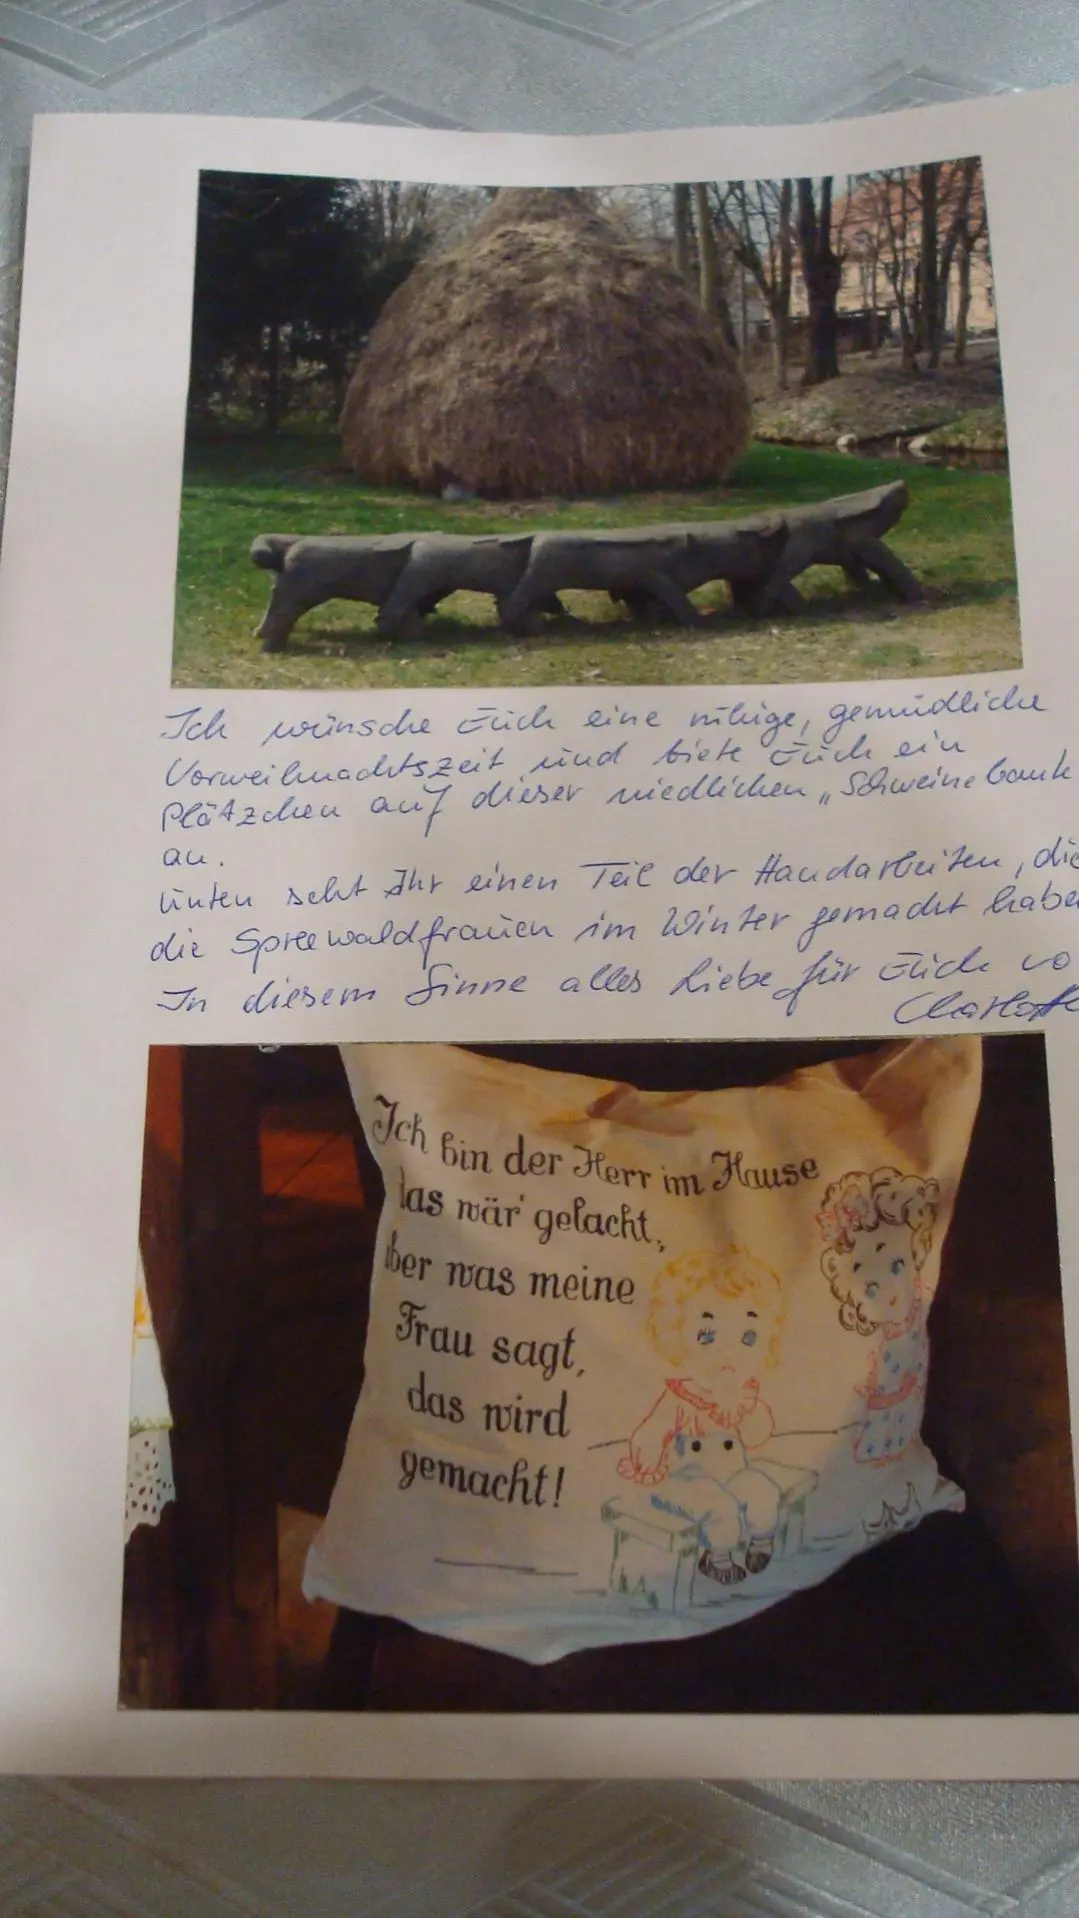 Ich wünsche Euch eine ruhige, gemüdliche
Vorweihnachtszeit und biete Euch ein
Plätzchen auf dieser niedlichen „Schweinebank
an.
Unten seht Ihr einen Teil der Handarbeiten, die
die Spreewaldfrauen im Winter gemacht habe
In diesem Sinne alles Liebe für Euch vo
Charlott
Ich bin der Herr im Hause
das wär' gelacht,
ber was meine
Frau sagt,
das wird
gemacht!